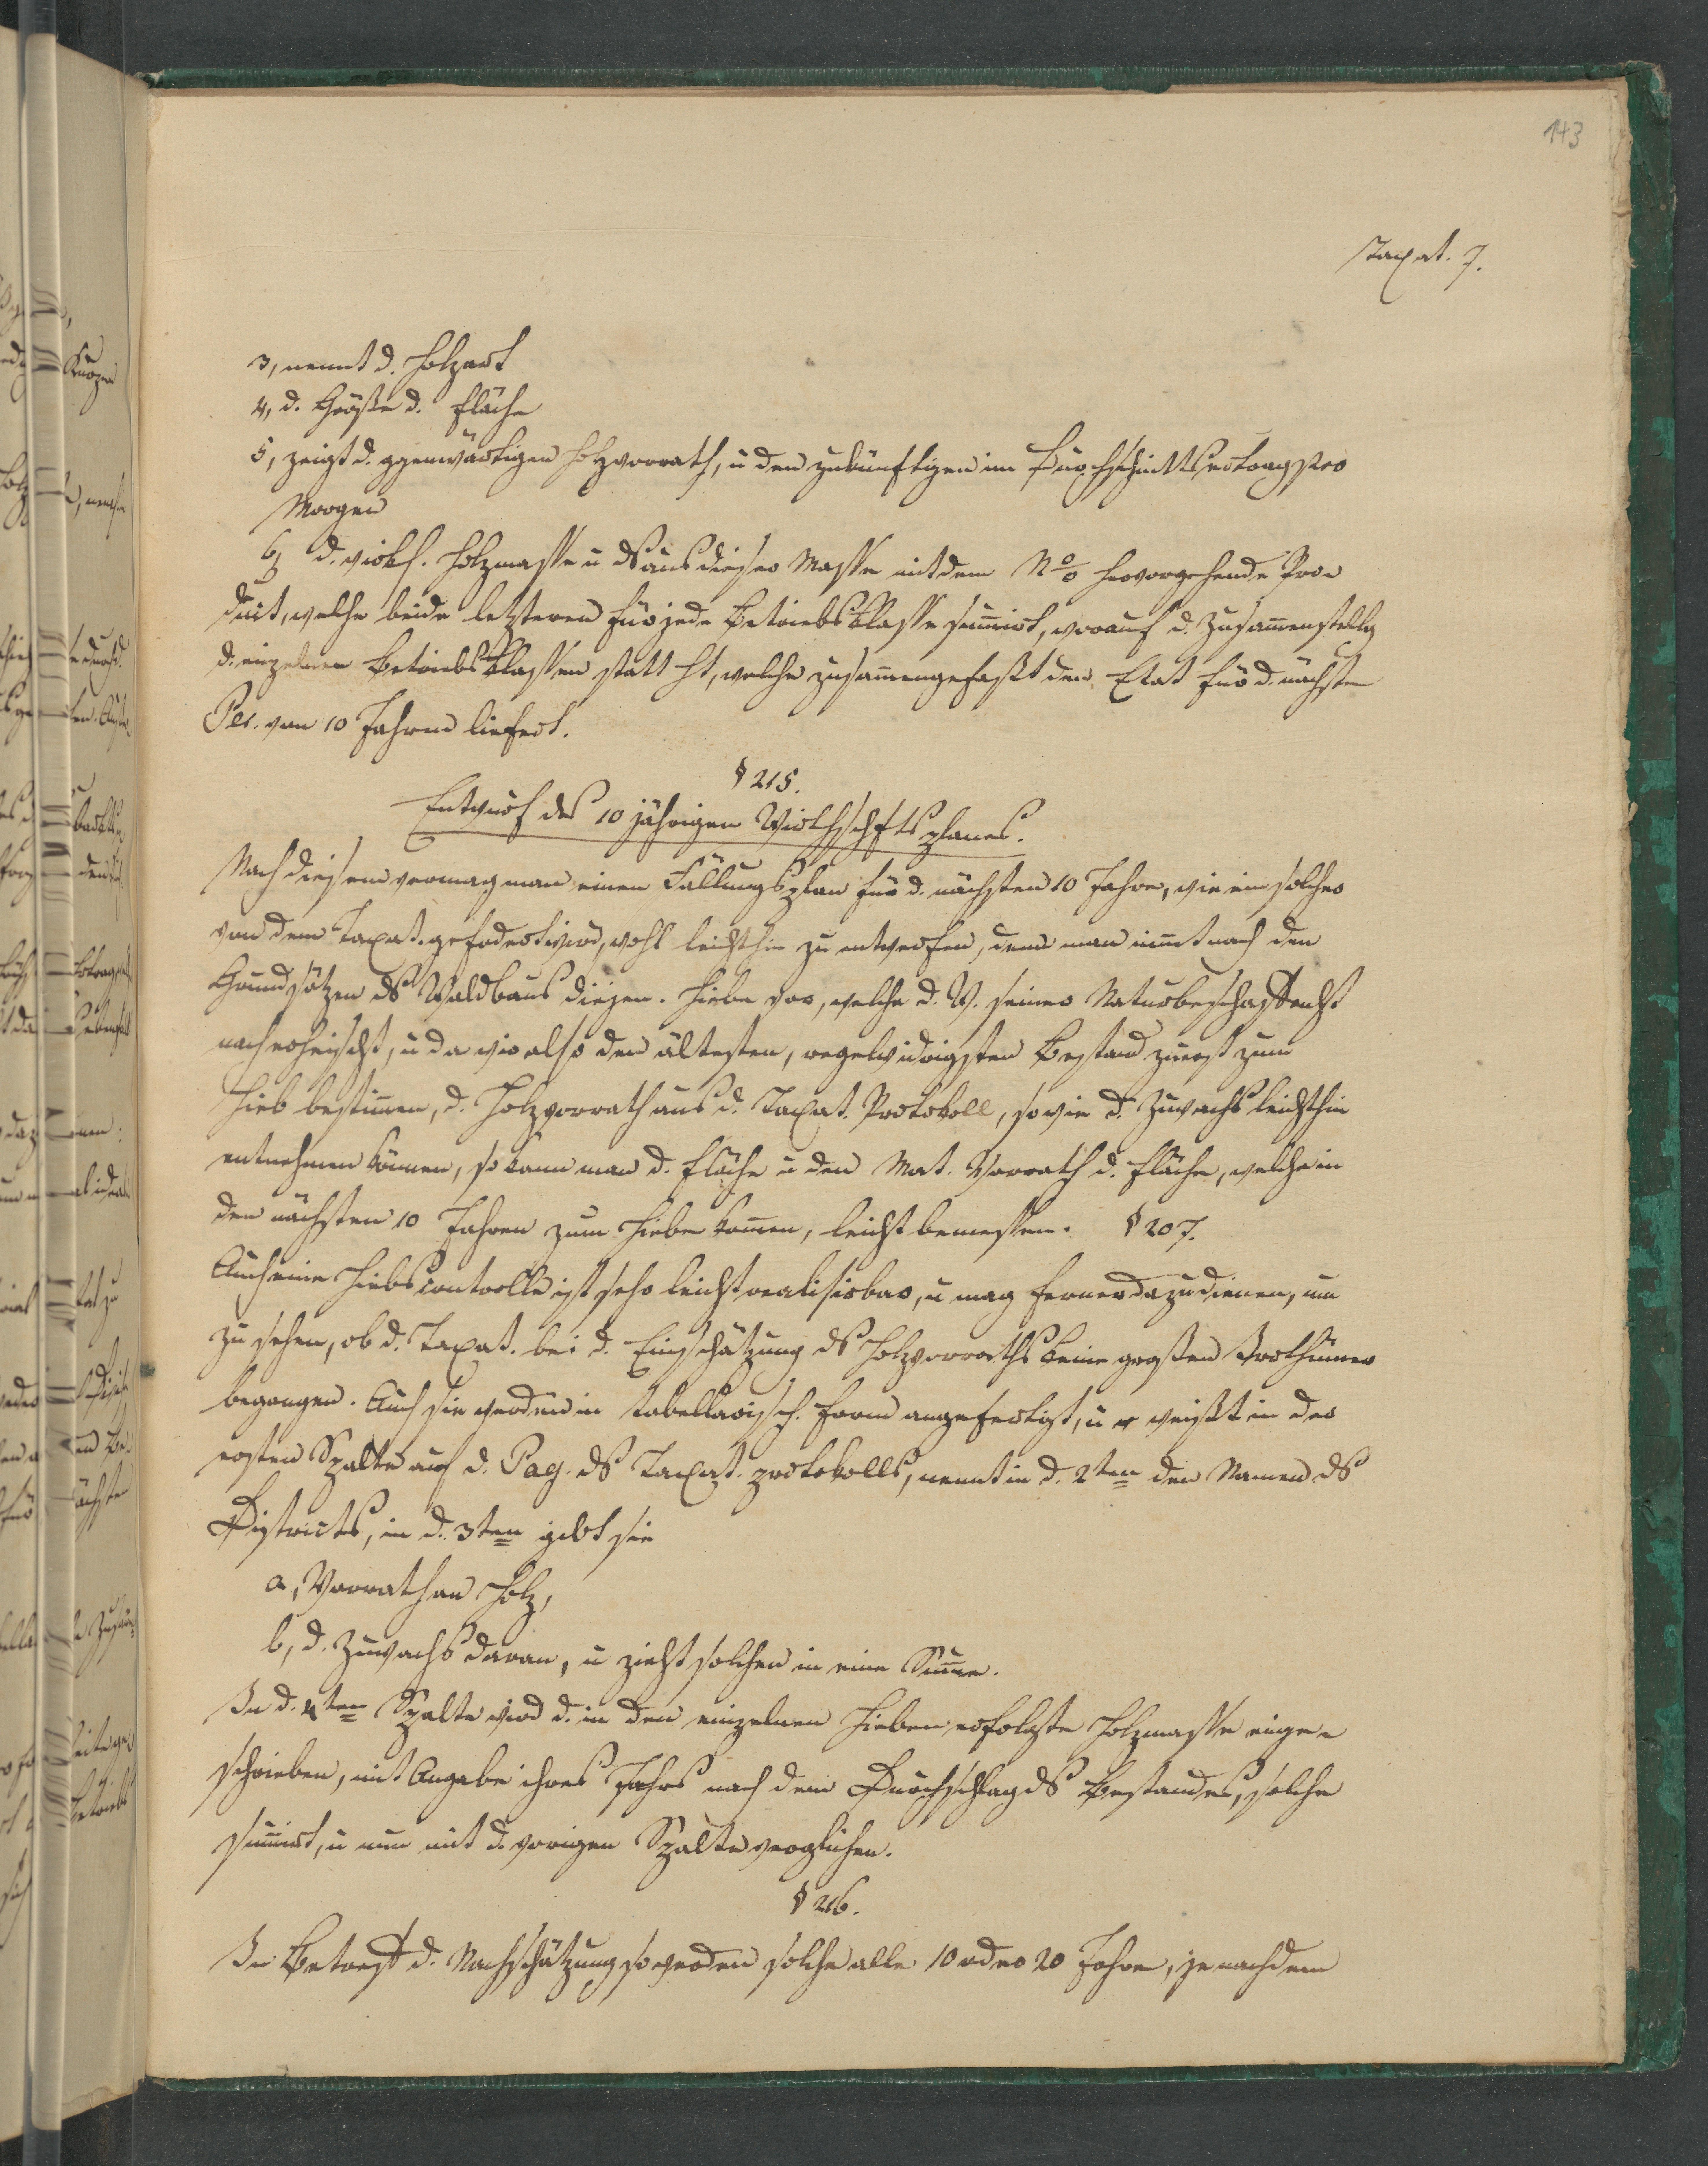 143
Taxat. 7.
3, nennt d. Holzart
4, d. Größe d. Fläche
5, zeigt d. ggenwärtigen Holzvorrath, u den zukünftigen im Durchschnittsertrag pro
Morgen
6, d. wirkl. Holzmasse u ds aus dieser Masse mit dem N % hervorgehende Pro=
duct, welche beide letzteren für jede Betriebsklasse sum̄irt, worauf d. Zusam̄enstellg
d. einzelnen Betriebsklassen statt ht, welche zusam̄engefaßt den Etat für d. nächste
Per. von 10 Jahren liefert.
§ 215.
Entwurf des 10 jährigen Wirthschftsplanes.
Nach diesem vermag man einen Fällungsplan für d. nächsten 10 Jahre, wie ein solcher
von dem Taxat. gefodert wird, wohl leichthin zu entwerfen, denn man nim̄t nach den
Grundsätzen ds Waldbaus diejen. Hiebe vor, welche d. W. seiner Naturbeschaffenht
nach erheischt, u da wir also den ältesten, regelwidrigsten Bestand zuerst zum
Hieb bestim̄en, d. Holzvorrath aus d. Taxat. Protokoll, so wie d. Zuwachs leichthin
entnehmen können, so kann man d. Fläche u den Mat. Vorrath d. Fläche, welche in
den nächsten 10 Jahren zum Hiebe kom̄en, leicht bemessen. § 207.
Auch eine Hiebscontrolle ist sehr leicht realisirbar, u mag ferner dazu dienen, um
zu sehen, ob d. Taxat. bei d. Einschätzung ds Holzvorraths keine großen Irrthümer
begangen. Auch sie werden in tabellarisch. Form angefertigt, u weißt in der
ersten Spalte auf d. Pag. ds Taxat. protokolls, nennt in d. 2ten den Namen ds
Districts, in d. 3ten gibt sie
a, Vorrath an Holz,
b, d. Zuwachs daran, u zieht solchen in eine Sum̄e.
In d. 4ten Spalte wird d. in den einzelnen Hieben erfolgte Holzmasse einge=
schrieben, mit Angabe ihres Jahrs nach dem Durchschlag ds Bestandes, solche
sum̄irt, u nun mit d. vorigen Spalte verglichen.
§ 216.
In Betreff d. Nachschätzung so werden solche alle 10 oder 20 Jahre, je nachdem